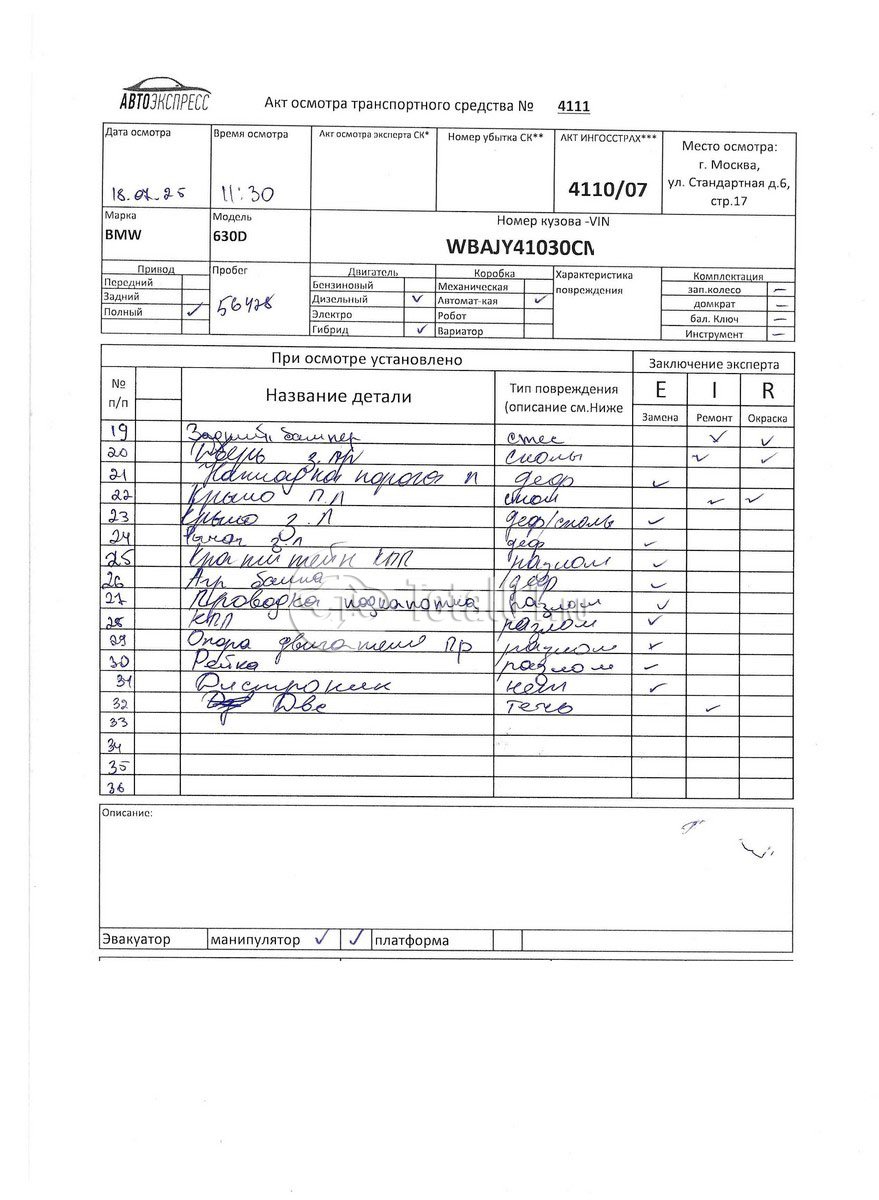 АВТОЭКСПРЕСС
Акт осмотра транспортного средства № 4111
Дата осмотра Время осмотра Акт осмотра эксперта СК* Номер убытка СК** АКТ ИНГОССТРАХ*** Место осмотра:
г. Москва,
ул. Стандартная д.6,
стр.17
18.07.25 11:30 4110/07
Марка Модель Номер кузова -VIN
BMW 630D WBAJY41030CM
Привод Пробег Двигатель Коробка Характеристика повреждения Комплектация
Передний Бензиновый Механическая зап.колесо –
Задний Дизельный ✓ Автомат-кая ✓ домкрат –
Полный ✓ 56428 Электро Робот бал. Ключ –
Гибрид ✓ Вариатор Инструмент –
При осмотре установлено Заключение эксперта
№ п/п Название детали Тип повреждения (описание см.Ниже E I R
Замена Ремонт Окраска
19 Задний бампер стес ✓ ✓
20 Дверь з.пр сколы ✓ ✓
21 Накладка порога л деф ✓
22 Крыло п.л скол ✓ ✓
23 Крыло з.л деф/сколы ✓
24 Рычаг з.л деф ✓
25 Кронштейн КПП разлом ✓
26 деф ✓
27 Проводка подкапотная разлом ✓
28 КПП разлом ✓
29 Опора двигателя пр разлом ✓
30 Рейка разлом ✓
31 Дистроник нет ✓
32 Двс течь ✓
33
34
35
36
Описание:
Эвакуатор манипулятор ✓ ✓ платформа
Total01.ru